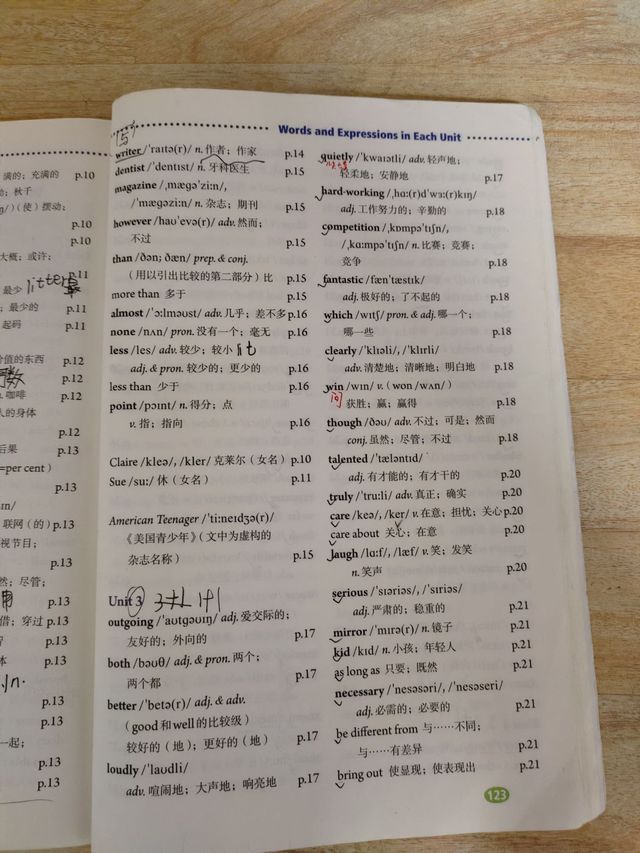 满的；充满的 p.10
秋千
/)（使）摆动；
p.10
p.10
大概；或许；
p.11
最少
最少的 p.11
起码 p.11
价值的东西 p.12
p.12
n. 咖啡 p.12
人的身体
p.12
后果 p.13
(=per cent)
p.13
in/
联网（的）p.13
视节目；
p.13
然；尽管；
p.13
借；穿过 p.13
p.13
体 p.13
p.13
p.13
一起；
p.13
p.13
Words and Expressions in Each Unit
writer /ˈraɪtə(r)/ n. 作者；作家 p.14
dentist /ˈdentɪst/ n. 牙科医生 p.15
magazine /ˌmæɡəˈziːn/,
/ˈmæɡəziːn/ n. 杂志；期刊 p.15
however /haʊˈevə(r)/ adv. 然而；
不过 p.15
than /ðən; ðæn/ prep. & conj.
（用以引出比较的第二部分）比 p.15
more than 多于 p.15
almost /ˈɔːlməʊst/ adv. 几乎；差不多 p.16
none /nʌn/ pron. 没有一个；毫无 p.16
less /les/ adv. 较少；较小
adj. & pron. 较少的；更少的 p.16
less than 少于 p.16
point /pɔɪnt/ n. 得分；点
v. 指；指向 p.16
Claire /kleə/, /kler/ 克莱尔（女名） p.10
Sue /suː/ 休（女名） p.11
American Teenager /ˈtiːneɪdʒə(r)/
《美国青少年》（文中为虚构的
杂志名称） p.15
Unit 3
outgoing /ˈaʊtɡəʊɪŋ/ adj. 爱交际的；
友好的；外向的 p.17
both /bəʊθ/ adj. & pron. 两个；
两个都 p.17
better /ˈbetə(r)/ adj. & adv.
（good 和 well 的比较级）
较好的（地）；更好的（地） p.17
loudly /ˈlaʊdli/
adv. 喧闹地；大声地；响亮地 p.17
quietly /ˈkwaɪətli/ adv. 轻声地；
轻柔地；安静地 p.17
hard-working /ˌhɑː(r)dˈwɜː(r)kɪŋ/
adj. 工作努力的；辛勤的 p.18
competition /ˌkɒmpəˈtɪʃn/,
/ˌkɑːmpəˈtɪʃn/ n. 比赛；竞赛；
竞争 p.18
fantastic /fænˈtæstɪk/
adj. 极好的；了不起的 p.18
which /wɪtʃ/ pron. & adj. 哪一个；
哪一些 p.18
clearly /ˈklɪəli/, /ˈklɪrli/
adv. 清楚地；清晰地；明白地 p.18
win /wɪn/ v. (won /wʌn/)
获胜；赢；赢得 p.18
though /ðəʊ/ adv. 不过；可是；然而
conj. 虽然；尽管；不过 p.18
talented /ˈtæləntɪd/
adj. 有才能的；有才干的 p.20
truly /ˈtruːli/ adv. 真正；确实 p.20
care /keə/, /ker/ v. 在意；担忧；关心 p.20
care about 关心；在意 p.20
laugh /lɑːf/, /læf/ v. 笑；发笑
n. 笑声 p.20
serious /ˈsɪəriəs/, /ˈsɪriəs/
adj. 严肃的；稳重的 p.21
mirror /ˈmɪrə(r)/ n. 镜子 p.21
kid /kɪd/ n. 小孩；年轻人 p.21
as long as 只要；既然 p.21
necessary /ˈnesəsəri/, /ˈnesəseri/
adj. 必需的；必要的 p.21
be different from 与……不同；
与……有差异 p.21
bring out 使显现；使表现出 p.21
123